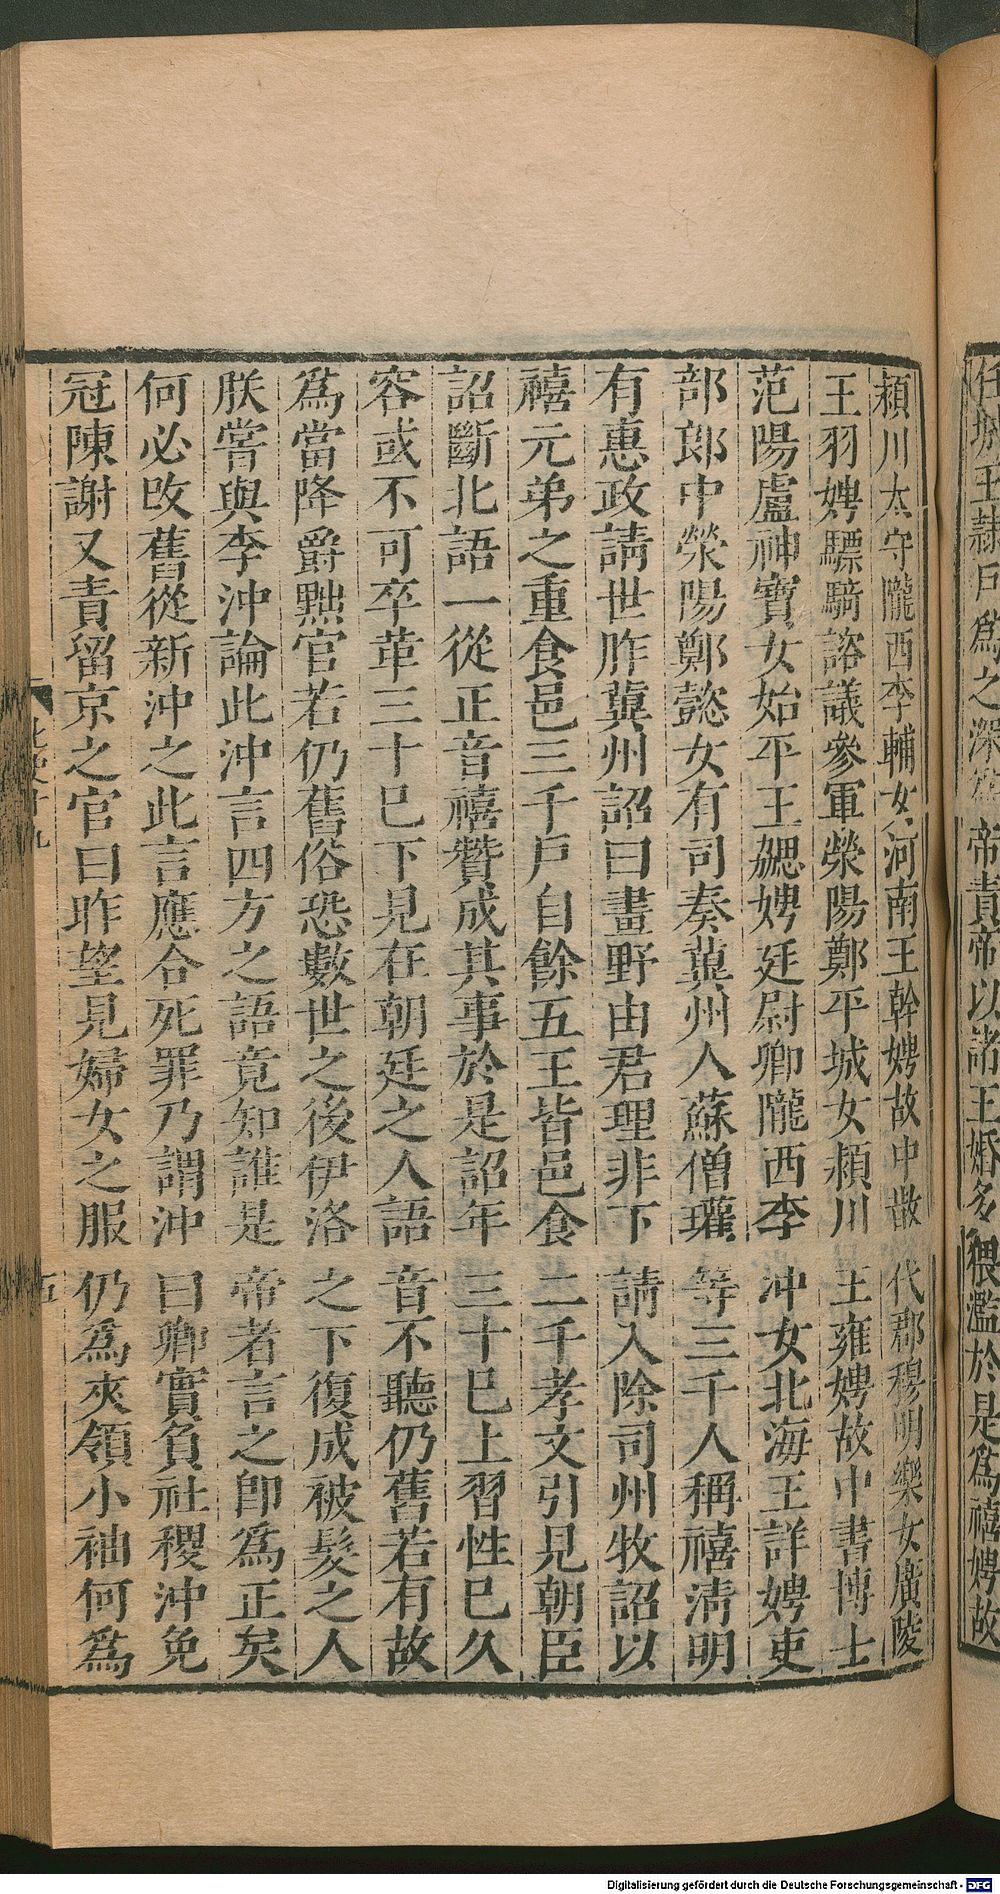 任城王隷戶爲之深爲帝責帝以諸王婚多猥濫於是爲禧娉故
潁川太守隴西李輔女河南王幹娉故中散代郡穆明樂女廣陵
王羽娉驃騎諮議參軍滎陽鄭平城女潁川王雍娉故中書博士
范陽盧神寶女始平王勰娉廷尉卿隴西李沖女北海王詳娉吏
部郎中滎陽鄭懿女有司奏冀州人蘇僧瓘等三千人稱禧淸明
有惠政請世胙冀州詔曰畫野由君理非下請入除司州牧詔以
禧元弟之重食邑三千戶自餘五王皆邑食二千孝文引見朝臣
詔斷北語一從正音禧贊成其事於是詔年三十巳上習性巳久
容或不可卒革三十巳下見在朝廷之人語音不聽仍舊若有故
爲當降爵黜官若仍舊俗恐數世之後伊洛之下復成被髮之人
朕嘗與李沖論此沖言四方之語竟知誰是帝者言之卽爲正矣
何必改舊從新沖之此言應合死罪乃謂沖曰卿實負社稷沖免
冠陳謝又責留京之官曰昨望見婦女之服仍爲夾領小袖何爲
北史十九
五
Digitalisierung gefördert durch die Deutsche Forschungsgemeinschaft - DFG